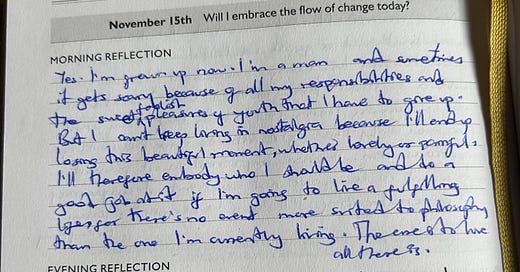 November 15th Will I embrace the flow of change today?
MORNING REFLECTION
Yes. I'm grown up now. I'm a man and sometimes
it gets scary because of all my responsibilities and
the sweet foolish pleasures of youth that I have to give up.
But I can't keep living in nostalgia because I'll end up
losing this beautiful moment, whether lovely or painful.
I'll therefore embody who I should be and do a
good job at it if I'm going to live a fulfilling
for there's no event more suited to philosophy
than the one I'm currently living. The one to live
all there is.
EVENING REFLECTION